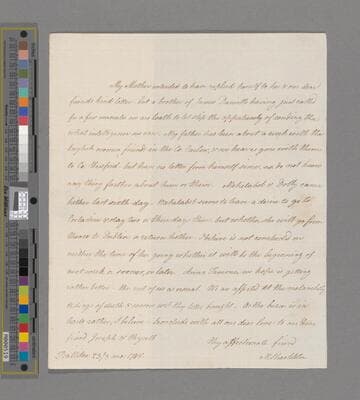 My Mother intended to have replied herself to her & our dear
friends kind letter but a brother of James having just called
for a few minutes we are loath to let slip the opportunity of sending the
what intelligence we can. My father has been about a week with the
english women friends in the Co. Carlow, & we hear is gone with them
to Co. Wexford but have no letter from himself since, so do not know
any thing further about him or them. Mehetabel & Dolly came
hither last sixth day. Mehetabel seems to have a desire to go to
two or three day time but whether she will go from
thence to Dublin or return hither I believe is not concluded in
neither the time of her going whether it will be the beginning of
next week or sooner, or later. Anna is hope is getting
rather better the rest of us as usual. We are affected at the melancholy
tidings of death & sorrow wch thy letter brought.
haste rather, I believe conclude with all our dear love to
friend Joseph & thyself
Thy affectionate friend
Ballitore 23/3 mo: 1785
M: Shackleton